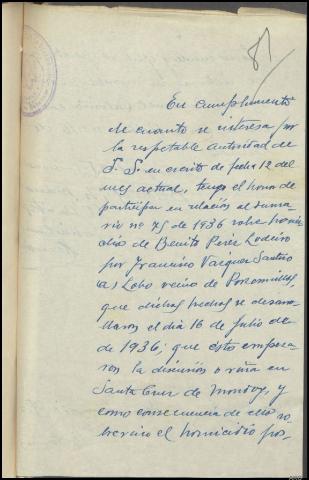 81
En cumplimento
de cuanto se interesa por
la respetable autoridad de
S. S. en escrito de fecha 12 del
mes actual, tengo el honor de
participar en relación al suma
rio nº 75 de 1936 sobre homi
cidio de Benito Perez Lodeiro
por Francisco Vazquez Santiso
a) Lobo vecino de
que dichos hechos se desarro
llaron el dia 16 de Julio de
de 1936; que éstos empeza
ron la discusión o riña en
Santa Cruz de Mondoy, y
como consecuencia de ello so
brevino el homicidio pos-